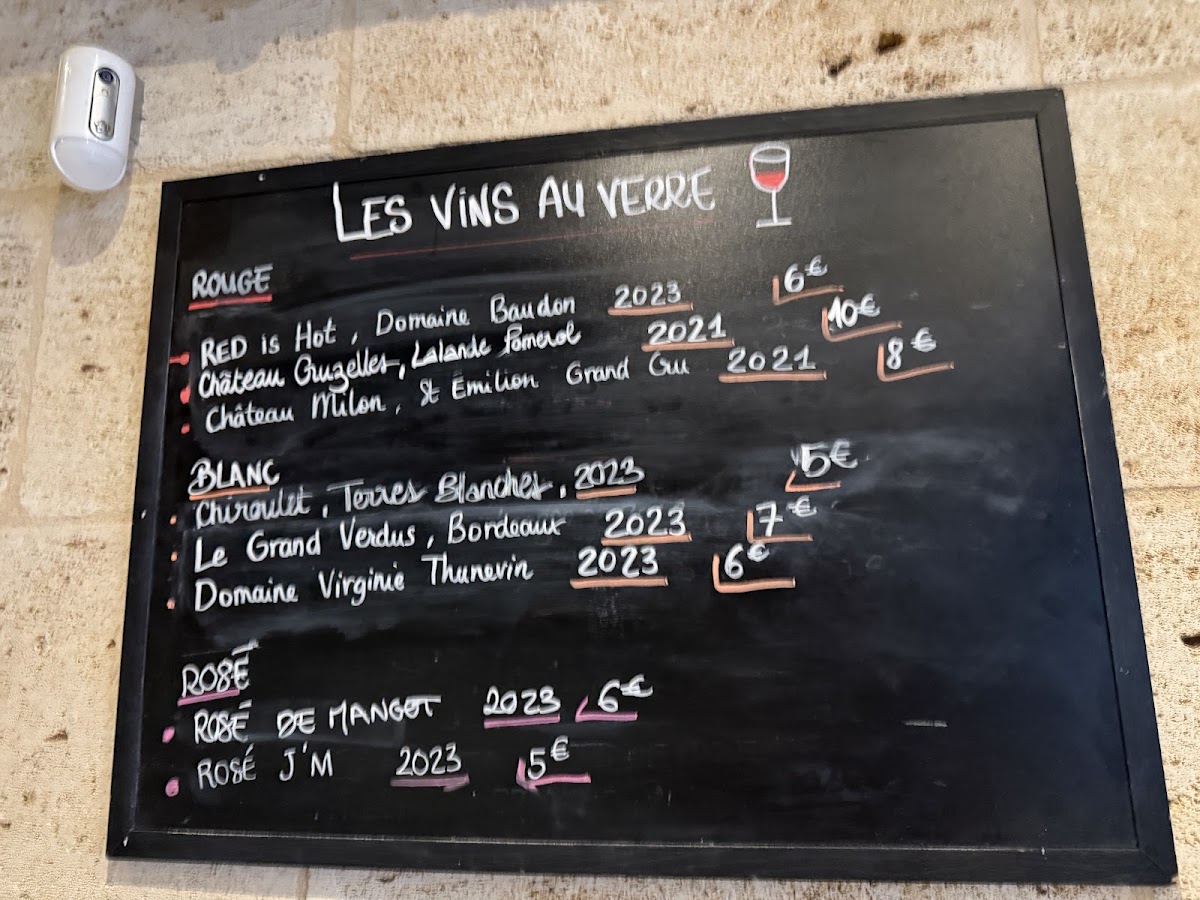 LES VINS AU VERRE
ROUGE
RED is Hot, Domaine Baudon 2023 6€
Château Cruzelles, Lalande Pomerol 2021 10€
Château Milon, St Émilion Grand Cru 2021 8€
BLANC
Chiroulet, Terres Blanches, 2023 5€
Le Grand Verdus, Bordeaux 2023 7€
Domaine Virginie Thunevin 2023 6€
ROSÉ
ROSÉ DE MANGOT 2023 6€
ROSÉ J'M 2023 5€